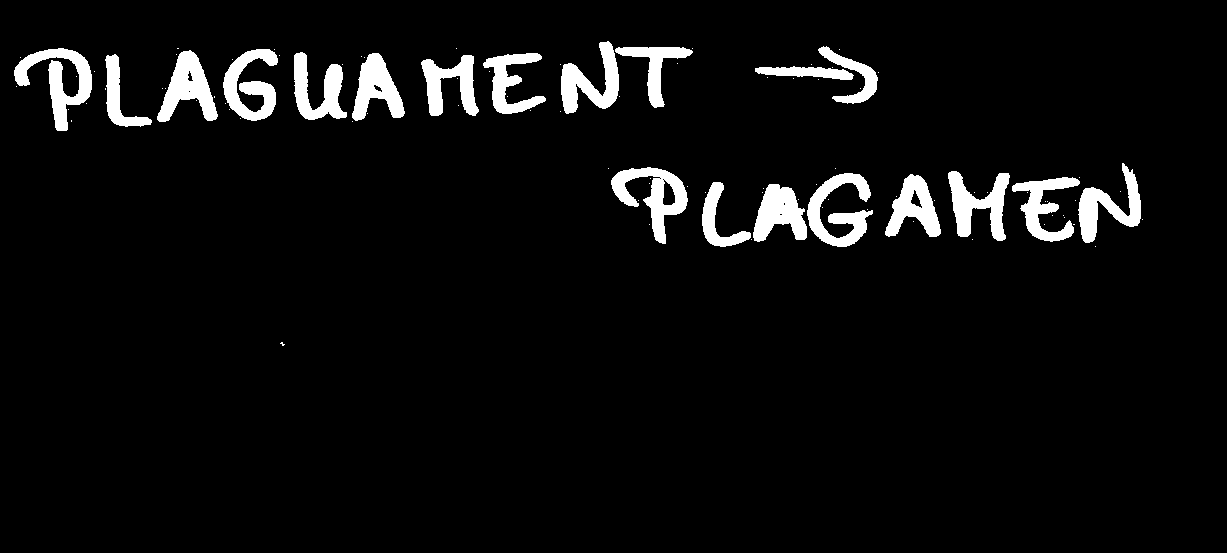 PLAGUAMENT →
PLAGAMEN